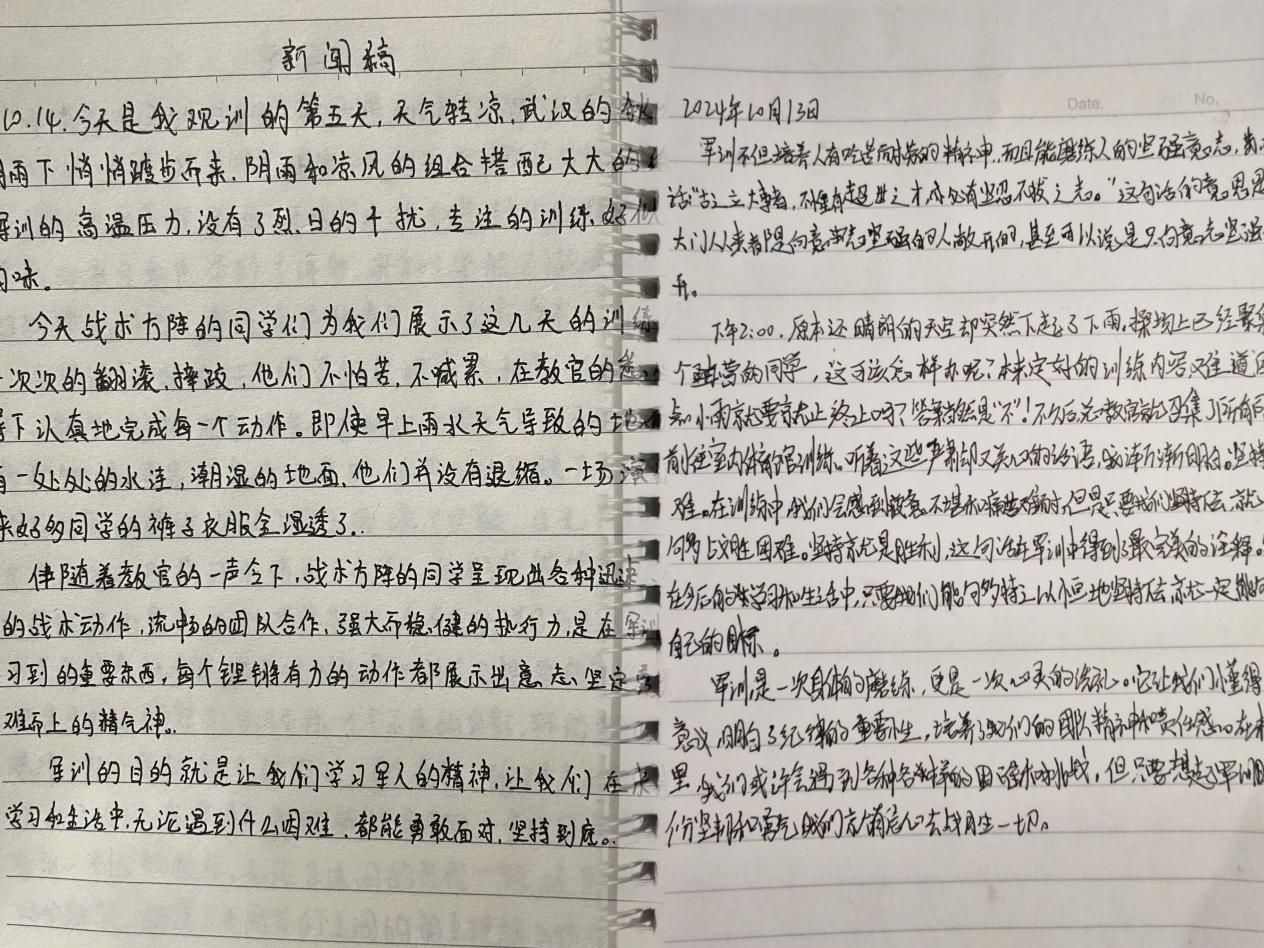 新闻稿
10.14.今天是我观训的第五天,天气转凉,武汉的秋
雨下悄悄踱步而来,阴雨和凉风的组合搭配大大的
军训的高温压力,没有了烈日的干扰,专注的训练好似
味。
今天战术方阵的同学们为我们展示了这几天的训练
一次次的翻滚,摔跤,他们不怕苦,不喊累,在教官的
下认真地完成每一个动作。即使早上雨水天气导致的地
一处处的水洼,潮湿的地面,他们并没有退缩。一场演
来好多同学的裤子衣服全湿透了..
伴随着教官的一声令下,战术方阵的同学呈现出各种迅速
的战术动作,流畅的团队合作,强大而稳健的执行力,是在军训
习到的重要东西,每个铿锵有力的动作都展示出意志坚定
难而上的精气神.
军训的目的就是让我们学习军人的精神,让我们在未
学习和生活中,无论遇到什么困难,都能勇敢面对,坚持到底。
Date. No.
2024年10月13日
军训不但培养人有吃苦而耐劳的精神,而且能磨练人的坚强意志,
话"古之立大事者,不惟有超世之才,亦必有坚忍不拔之志。"这句话的意思是
大门从来都是向意志坚强的人敞开的,甚至可以说是只向意志坚强
开。
下午2:00,原本还晴朗的天空却突然下起了下雨,操场上已经聚集
个连营的同学,这可该怎样办呢?本来定好的训练内容难道因
点小雨就要就此终止吗?答案当然是"不"!不久后总教官就召集了所有同
前往室内体育馆训练。听着这些严肃却又关心的话语,我渐渐明白。坚持
难。在训练中我们会感到疲惫不堪和痛苦难耐,但是只要我们坚持住,就
够战胜困难。坚持就是胜利,这句话在军训中得到了最完美的诠释。
在今后的学习和生活中,只要我们能够持之以恒地坚持住,就一定能够
自己的目标。
军训是一次身体的磨练,更是一次心灵的洗礼。它让我们懂得
意议,明白了纪律的重要性,培养了我们的团队精神和责任感。在未
里,我们或许会遇到各种各样的困难和挑战,但只要想起军训
份坚韧和勇气,我们就有信心去战胜一切。